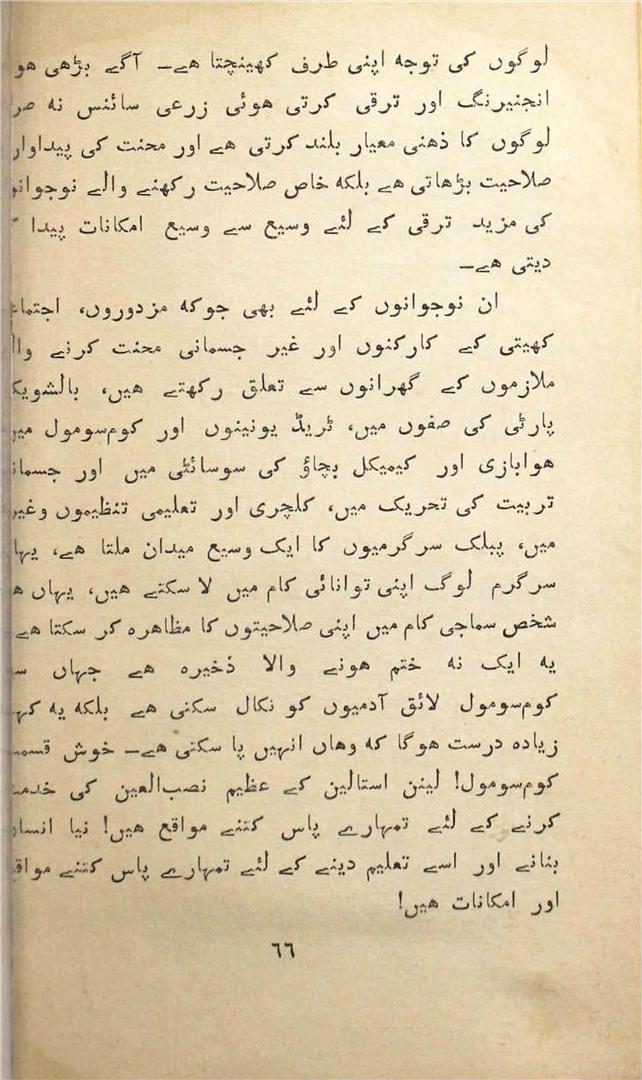 لوگوں کی توجہ اپنی طرف کھینچتا ھے۔ آگے بڑھی
انجنیرنگ اور ترقی کرتی ھوئی زرعی سائنس نہ
لوگوں کا ذھنی معیار بلند کرتی ھے اور محنت کی
صلاحیت بڑھاتی ھے بلکہ خاص صلاحیت رکھنے والے
کی مزید ترقی کے لئے وسیع سے وسیع امکانات پیدا
دیتی ھے۔
ان نوجوانوں کے لئے بھی جوکہ مزدوروں،
کھیتی کے کارکنوں اور غیر جسمانی محنت کرنے
ملازموں کے گھرانوں سے تعلق رکھتے ھیں،
پارٹی کی صفوں میں، ٹریڈ یونینوں اور کوم‌سومول
ھوابازی اور کیمیکل بچاؤ کی سوسائٹی میں اور
تربیت کی تحریک میں، کلچری اور تعلیمی تنظیموں
میں، پبلک سرگرمیوں کا ایک وسیع میدان ملتا ھے،
سرگرم لوگ اپنی توانائی کام میں لا سکتے ھیں، یہاں
شخص سماجی کام میں اپنی صلاحیتوں کا مظاھرہ کر سکتا ھے
یہ ایک نہ ختم ھونے والا ذخیرہ ھے جہاں
کوم‌سومول لائق آدمیوں کو نکال سکتی ھے بلکہ یہ
زیادہ درست ھوگا کہ وھاں انہیں پا سکتی ھے۔ خوش
کوم‌سومول! لینن استالین کے عظیم نصب‌العین کی
کرنے کے لئے تمہارے پاس کتنے مواقع ھیں! نیا
بنانے اور اسے تعلیم دینے کے لئے تمہارے پاس کتنے
اور امکانات ھیں!
٦٦